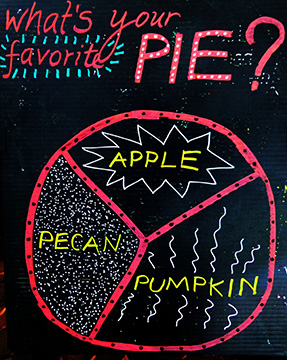 what's your
favorite PIE?
APPLE
PECAN
PUMPKIN